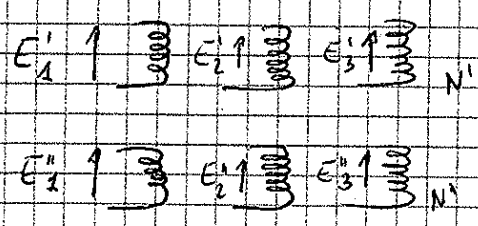 E₁' E₂' E₃' N'
E₁'' E₂'' E₃'' N'